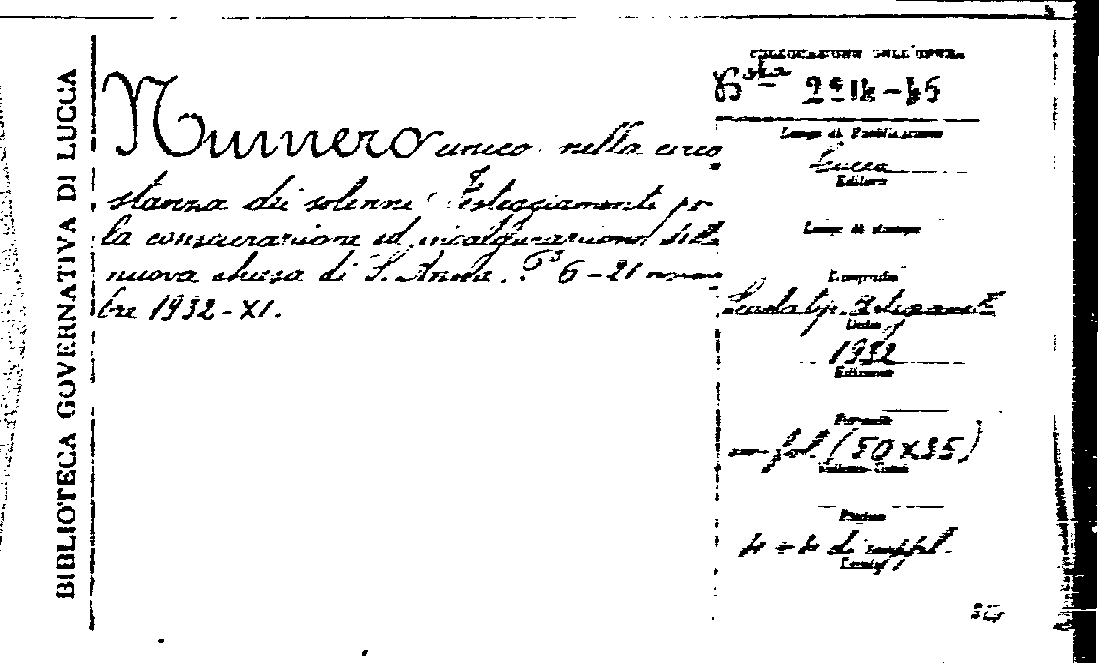 BIBLIOTECA GOVERNATIVA DI LUCCA
Numero unico nella circo
stanza dei solenni Festeggiamenti per
la consacrazione ed inaugurazione della
nuova chiesa di S. Anna. 6-21 novem
bre 1932-XI.
COLLOCAZIONE DELL'OPERA
Bsta
Luogo di Pubblicazione
Lucca
Editore
Luogo di stampa
Stamperia
Scuola tip. Artigianelli
Data
1932
Edizione
Formato
in-fol. (50x35)
Volume
Pagine
4+4 di suppl.